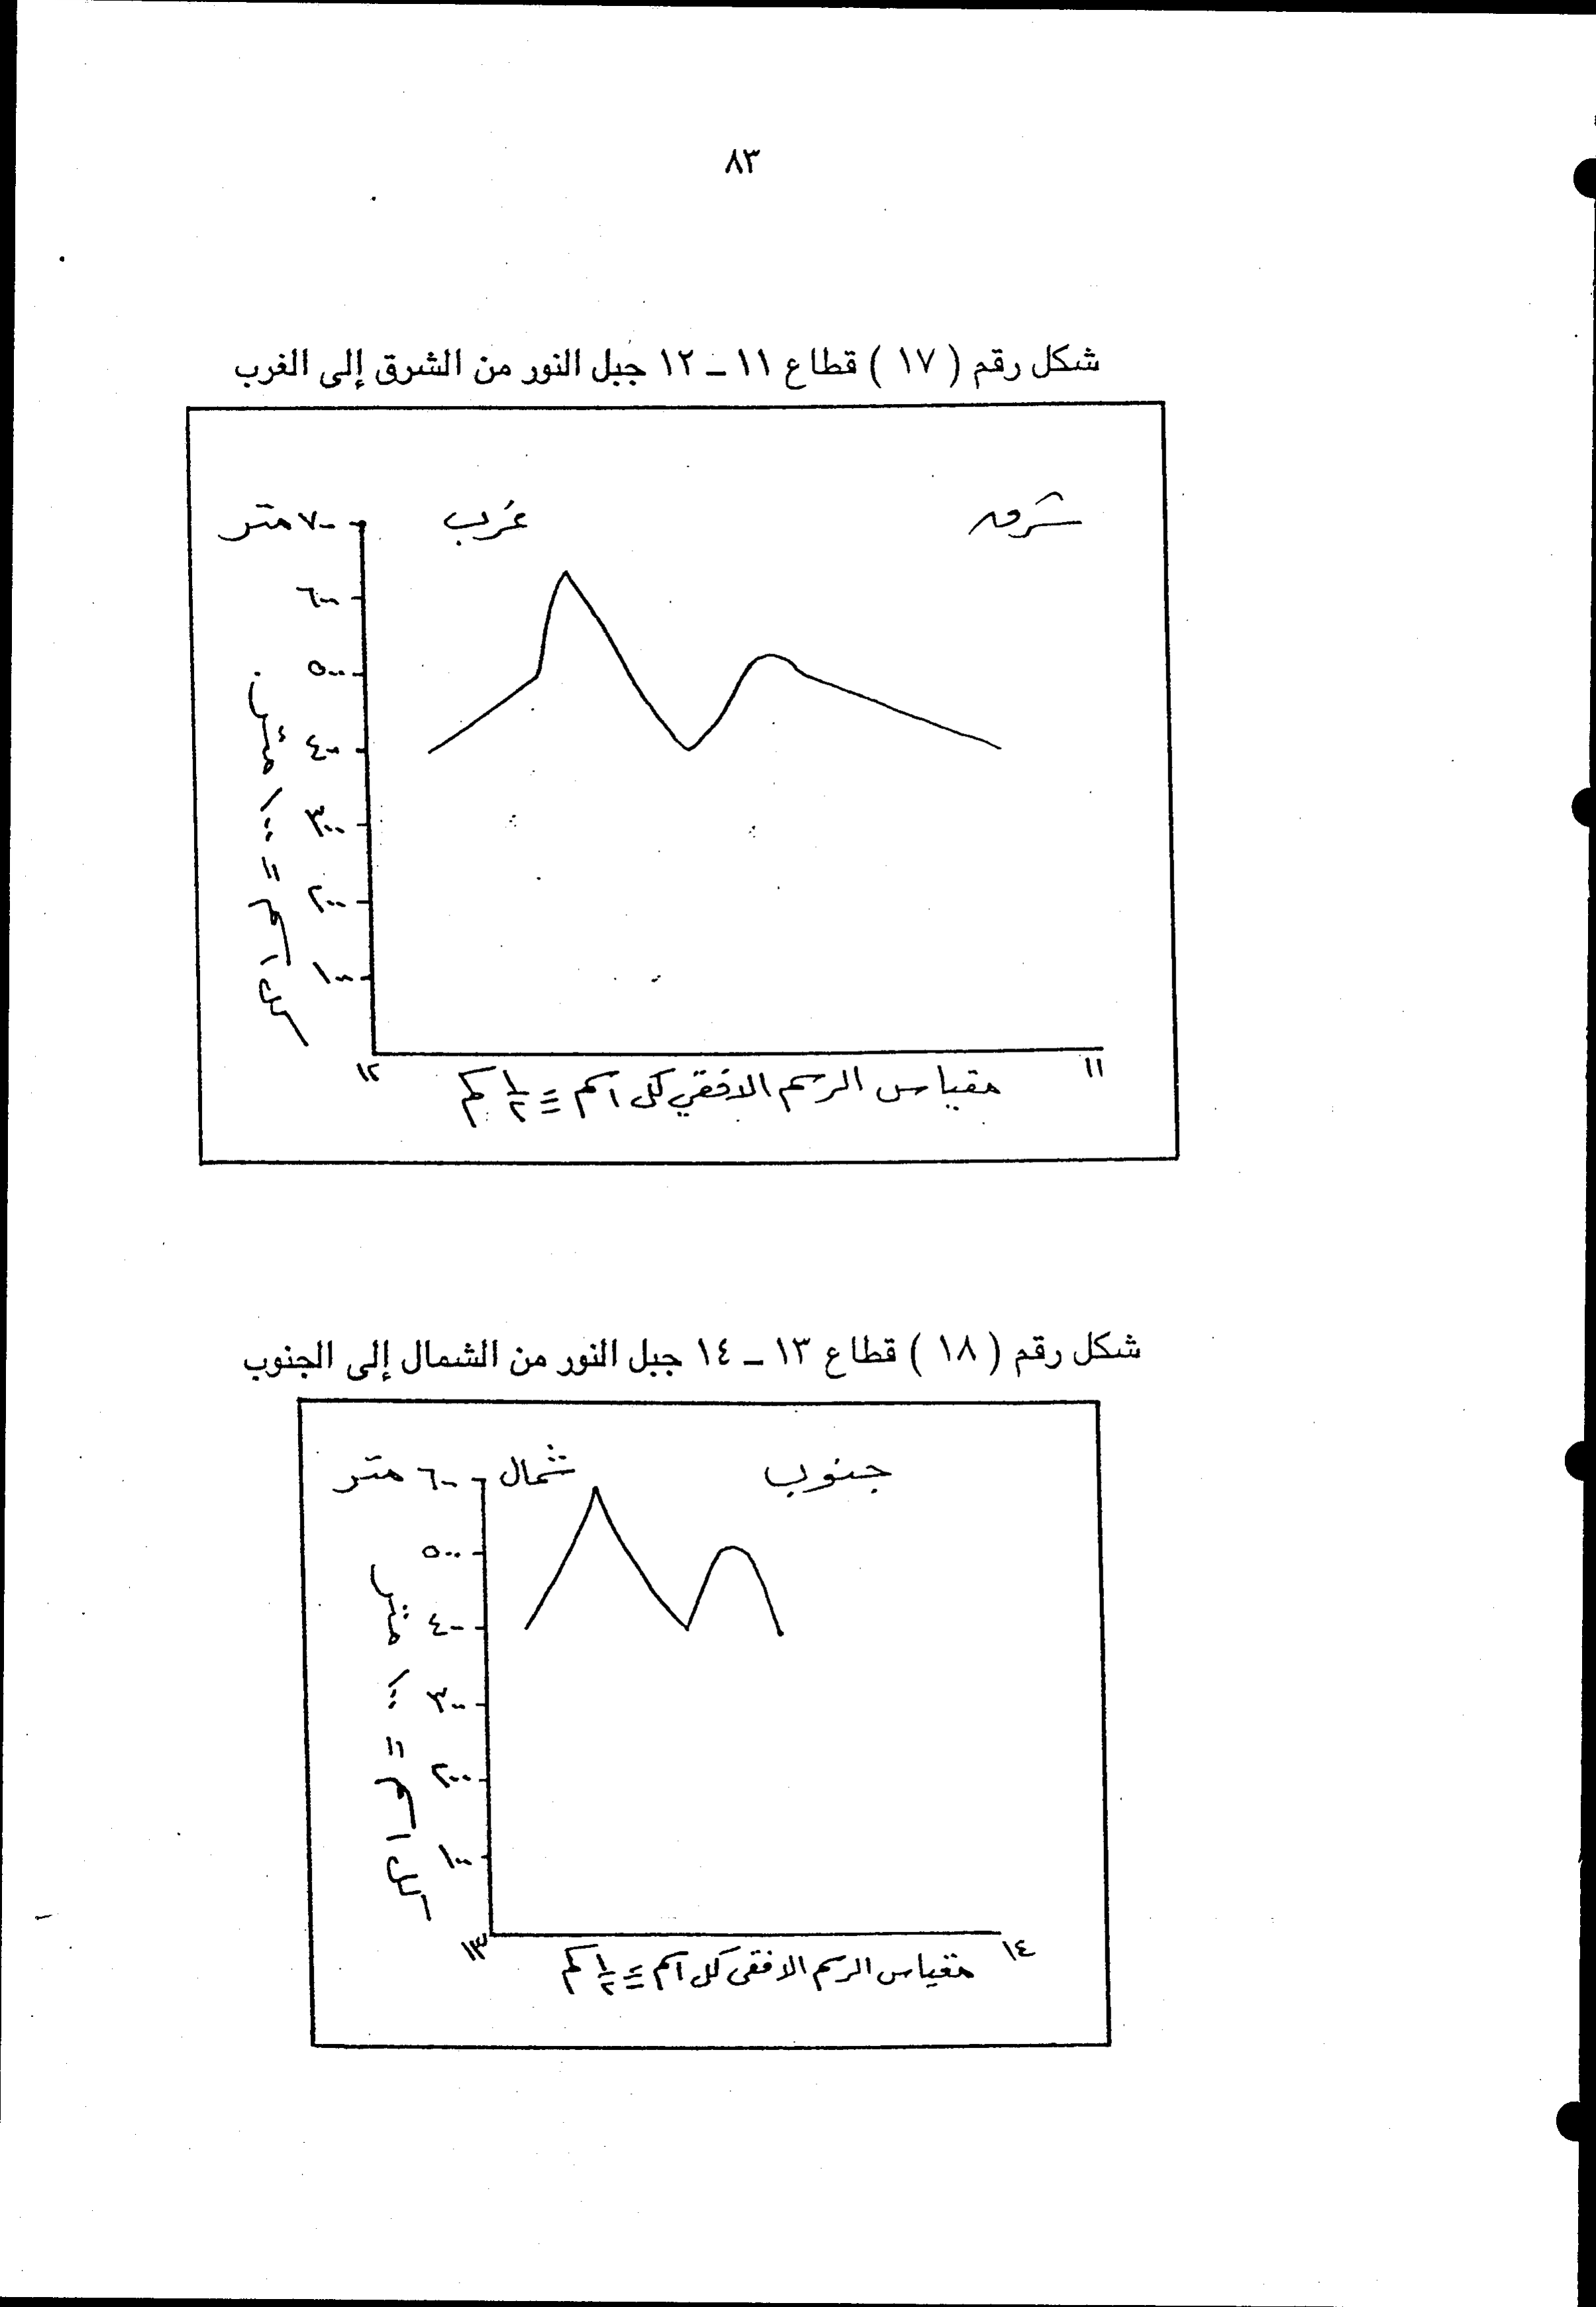 ٨٣
شكل رقم ( ١٧ ) قطاع ١١ ــ ١٢ جبل النور من الشرق إلى الغرب
شرق
غرب
٧٠٠ متر
٦٠٠
٥٠٠
٤٠٠
٣٠٠
٢٠٠
١٠٠
كل ١سم = ١٠٠ متر
١١
١٢
مقياس الرسم الافقي كل ١سم = ١/٢ كم
شكل رقم ( ١٨ ) قطاع ١٣ ــ ١٤ جبل النور من الشمال إلى الجنوب
جنوب
شمال
٦٠٠ متر
٥٠٠
٤٠٠
٣٠٠
٢٠٠
١٠٠
كل ١سم = ١٠٠ متر
١٤
١٣
مقياس الرسم الافقى كل ١سم = ١/٢ كم